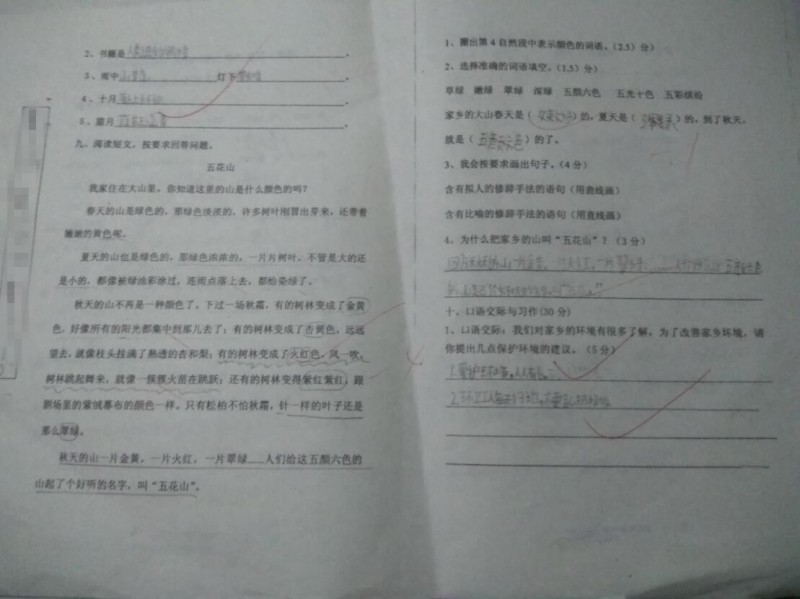 2、书籍是
3、雨中 灯下
4、十月
5、腊月
九、阅读短文，按要求回答问题。
五花山
我家住在大山里，你知道这里的山是什么颜色的吗？
春天的山是绿色的，那绿色淡淡的，许多树叶刚冒出芽来，还带着
嫩嫩的黄色呢。
夏天的山也是绿色的，那绿色浓浓的，一片片树叶，不管是大的还
是小的，都像被绿油彩涂过，连雨点落上去，都给染绿了。
秋天的山不再是一种颜色了，下过一场秋霜，有的树林变成了金黄
色，好像所有的阳光都集中到那儿去了；有的树林变成了杏黄色，远远
望去，就像枝头挂满了熟透的杏和梨；有的树林变成了火红色，风一吹，
树林跳起舞来，就像一簇簇火苗在跳跃；还有的树林变得紫红紫红，跟
剧场里的紫绒幕布的颜色一样。只有松柏不怕秋霜，针一样的叶子还是
那么翠绿。
秋天的山一片金黄，一片火红，一片翠绿……人们给这五颜六色的
山起了个好听的名字，叫“五花山”。
1、圈出第4自然段中表示颜色的词语。（2.5）分）
2、选择准确的词语填空。（1.5）分）
草绿 嫩绿 翠绿 深绿 五颜六色 五光十色 五彩缤纷
家乡的大山春天是（ ）的，夏天是（ ）的，到了秋天，
就是（五颜六色）的了。
3、我会按要求画出句子。（4分）
含有拟人的修辞手法的语句（用直线画）
含有比喻的修辞手法的语句（用直线画）
4、为什么把家乡的山叫“五花山”？（3分）
十、口语交际与习作(30分)
1、口语交际：我们对家乡的环境有很多了解，为了改善家乡环境，请
你提出几点保护环境的建议。（5分）
1.
2.